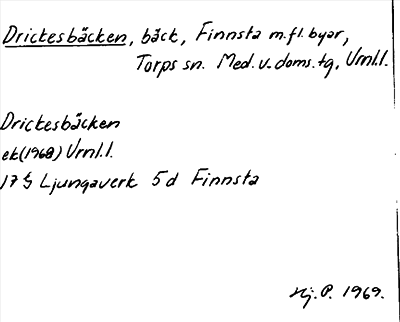 Drickesbäcken, bäck, Finnsta m.fl. byar,
Torps sn. Med. v. doms. tg, Vrnl.l.
Drickesbäcken
ek(1968) Vrnl.l.
17 G Ljungaverk 5 d Finnsta
Hj. P. 1969.